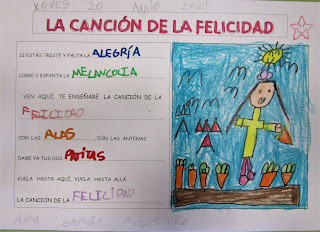 XOVES 20 MAIO 2021
LA CANCIÓN DE LA FELICIDAD
SI ESTÁS TRISTE Y FALTA LA ALEGRÍA
CORRE Y ESPANTA LA MELANCOLIA
VEN AQUÍ, TE ENSEÑARÉ LA CANCIÓN DE LA
FELICIDAD
CON LAS ALAS CON LAS ANTENAS
DAME YA TUS DOS PATITAS
VUELA HASTA AQUÍ, VUELA HASTA ALLÁ
LA CANCIÓN DE LA FELICIDAD
GARCIA RODRIGUEZ